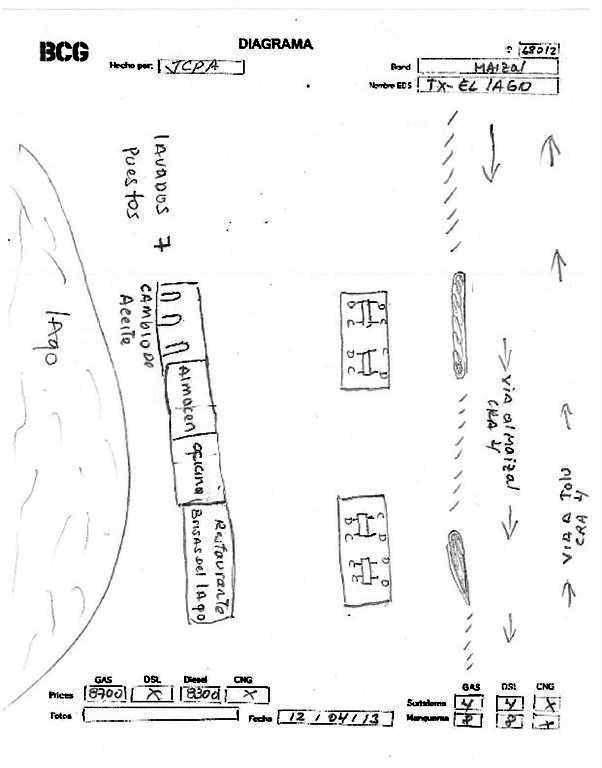 BCG
DIAGRAMA
Hecho por: JCPA
Band MAIZAL
Nombre EDS TX-EL LAGO
LAVADOS 7
PUESTOS
CAMBIO DE
Aceite
lAgo
Almacen
oficina
Restaurante
BRISAS del lAgo
D D
C C
D C
C D
C D
D C
D
D
VIA al maizal
CRA 4
VIA A Tolu
CRA 4
GAS DSL Diesel CNG
Prices 8700 X 8300 X
Fotos
Fecha 12/04/13
GAS DSL CNG
Surtidores 4 4 X
Mangueras 8 8 X